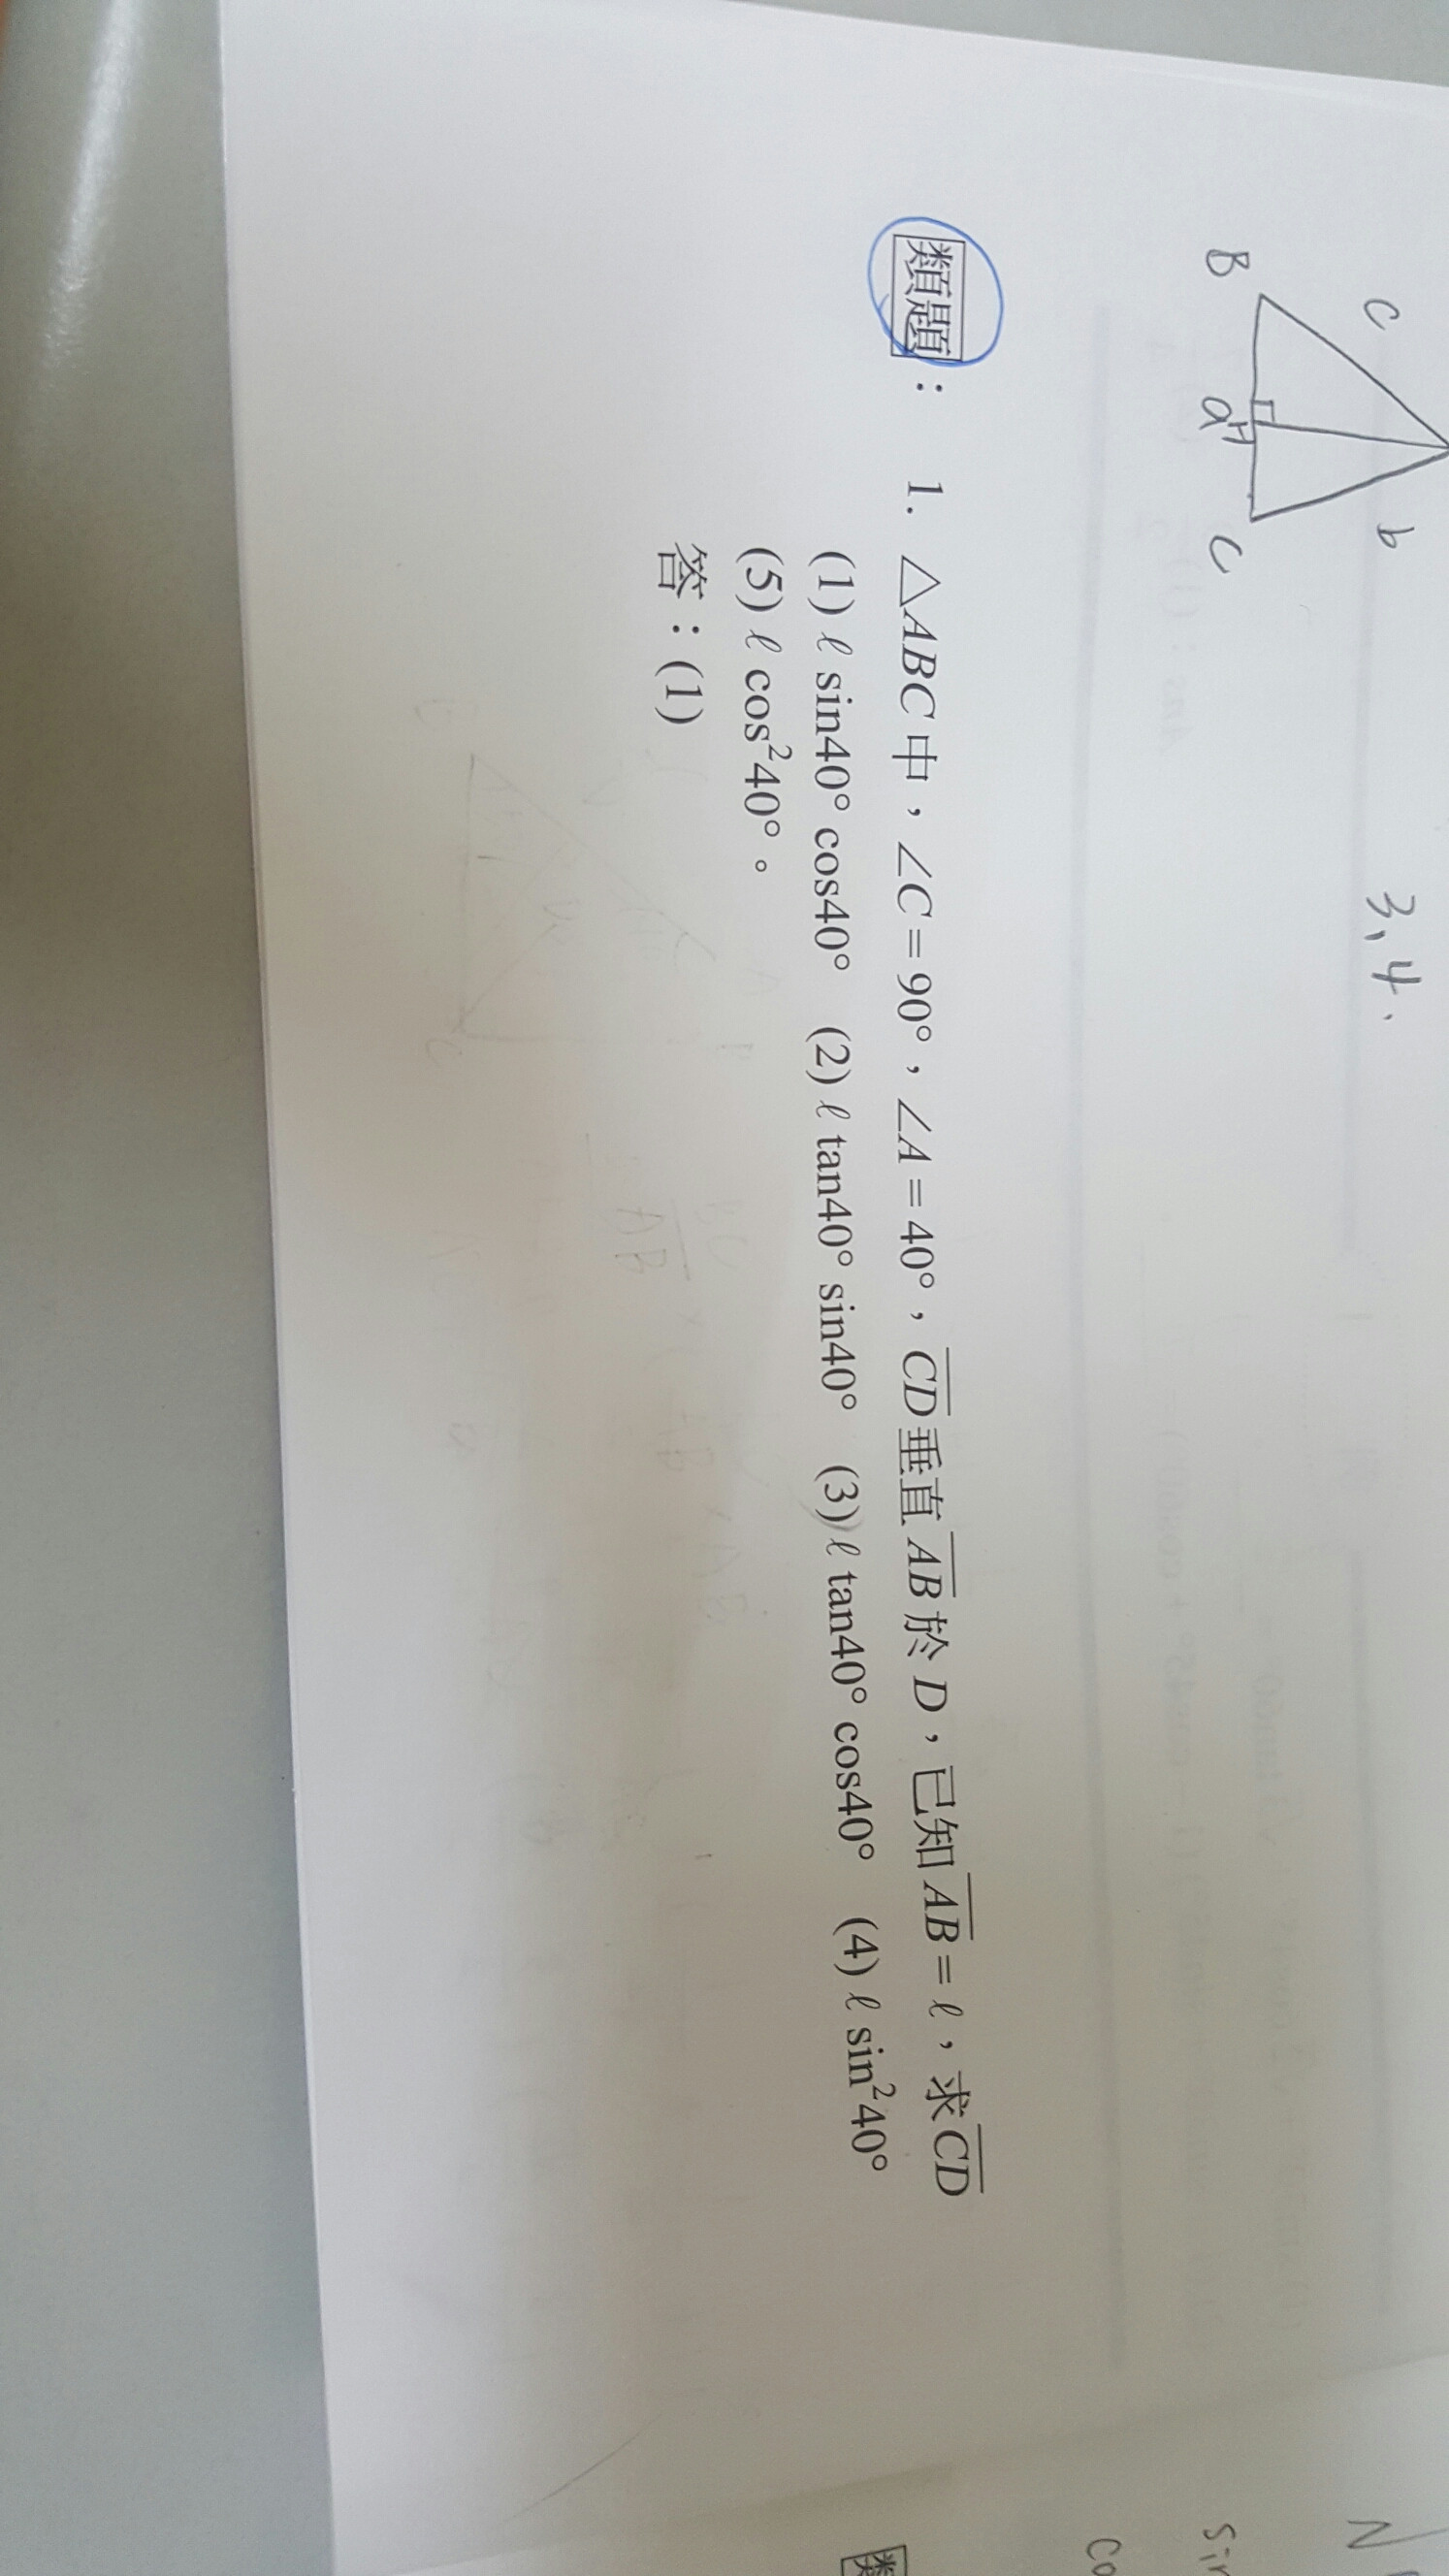 3,4.
B
c
a
b
C
類題：
1. △ABC中，∠C=90°，∠A=40°，CD垂直AB於D，已知AB=ℓ，求CD
(1) ℓ sin40° cos40° (2) ℓ tan40° sin40° (3) ℓ tan40° cos40° (4) ℓ sin²40°
(5) ℓ cos²40°。
答：(1)